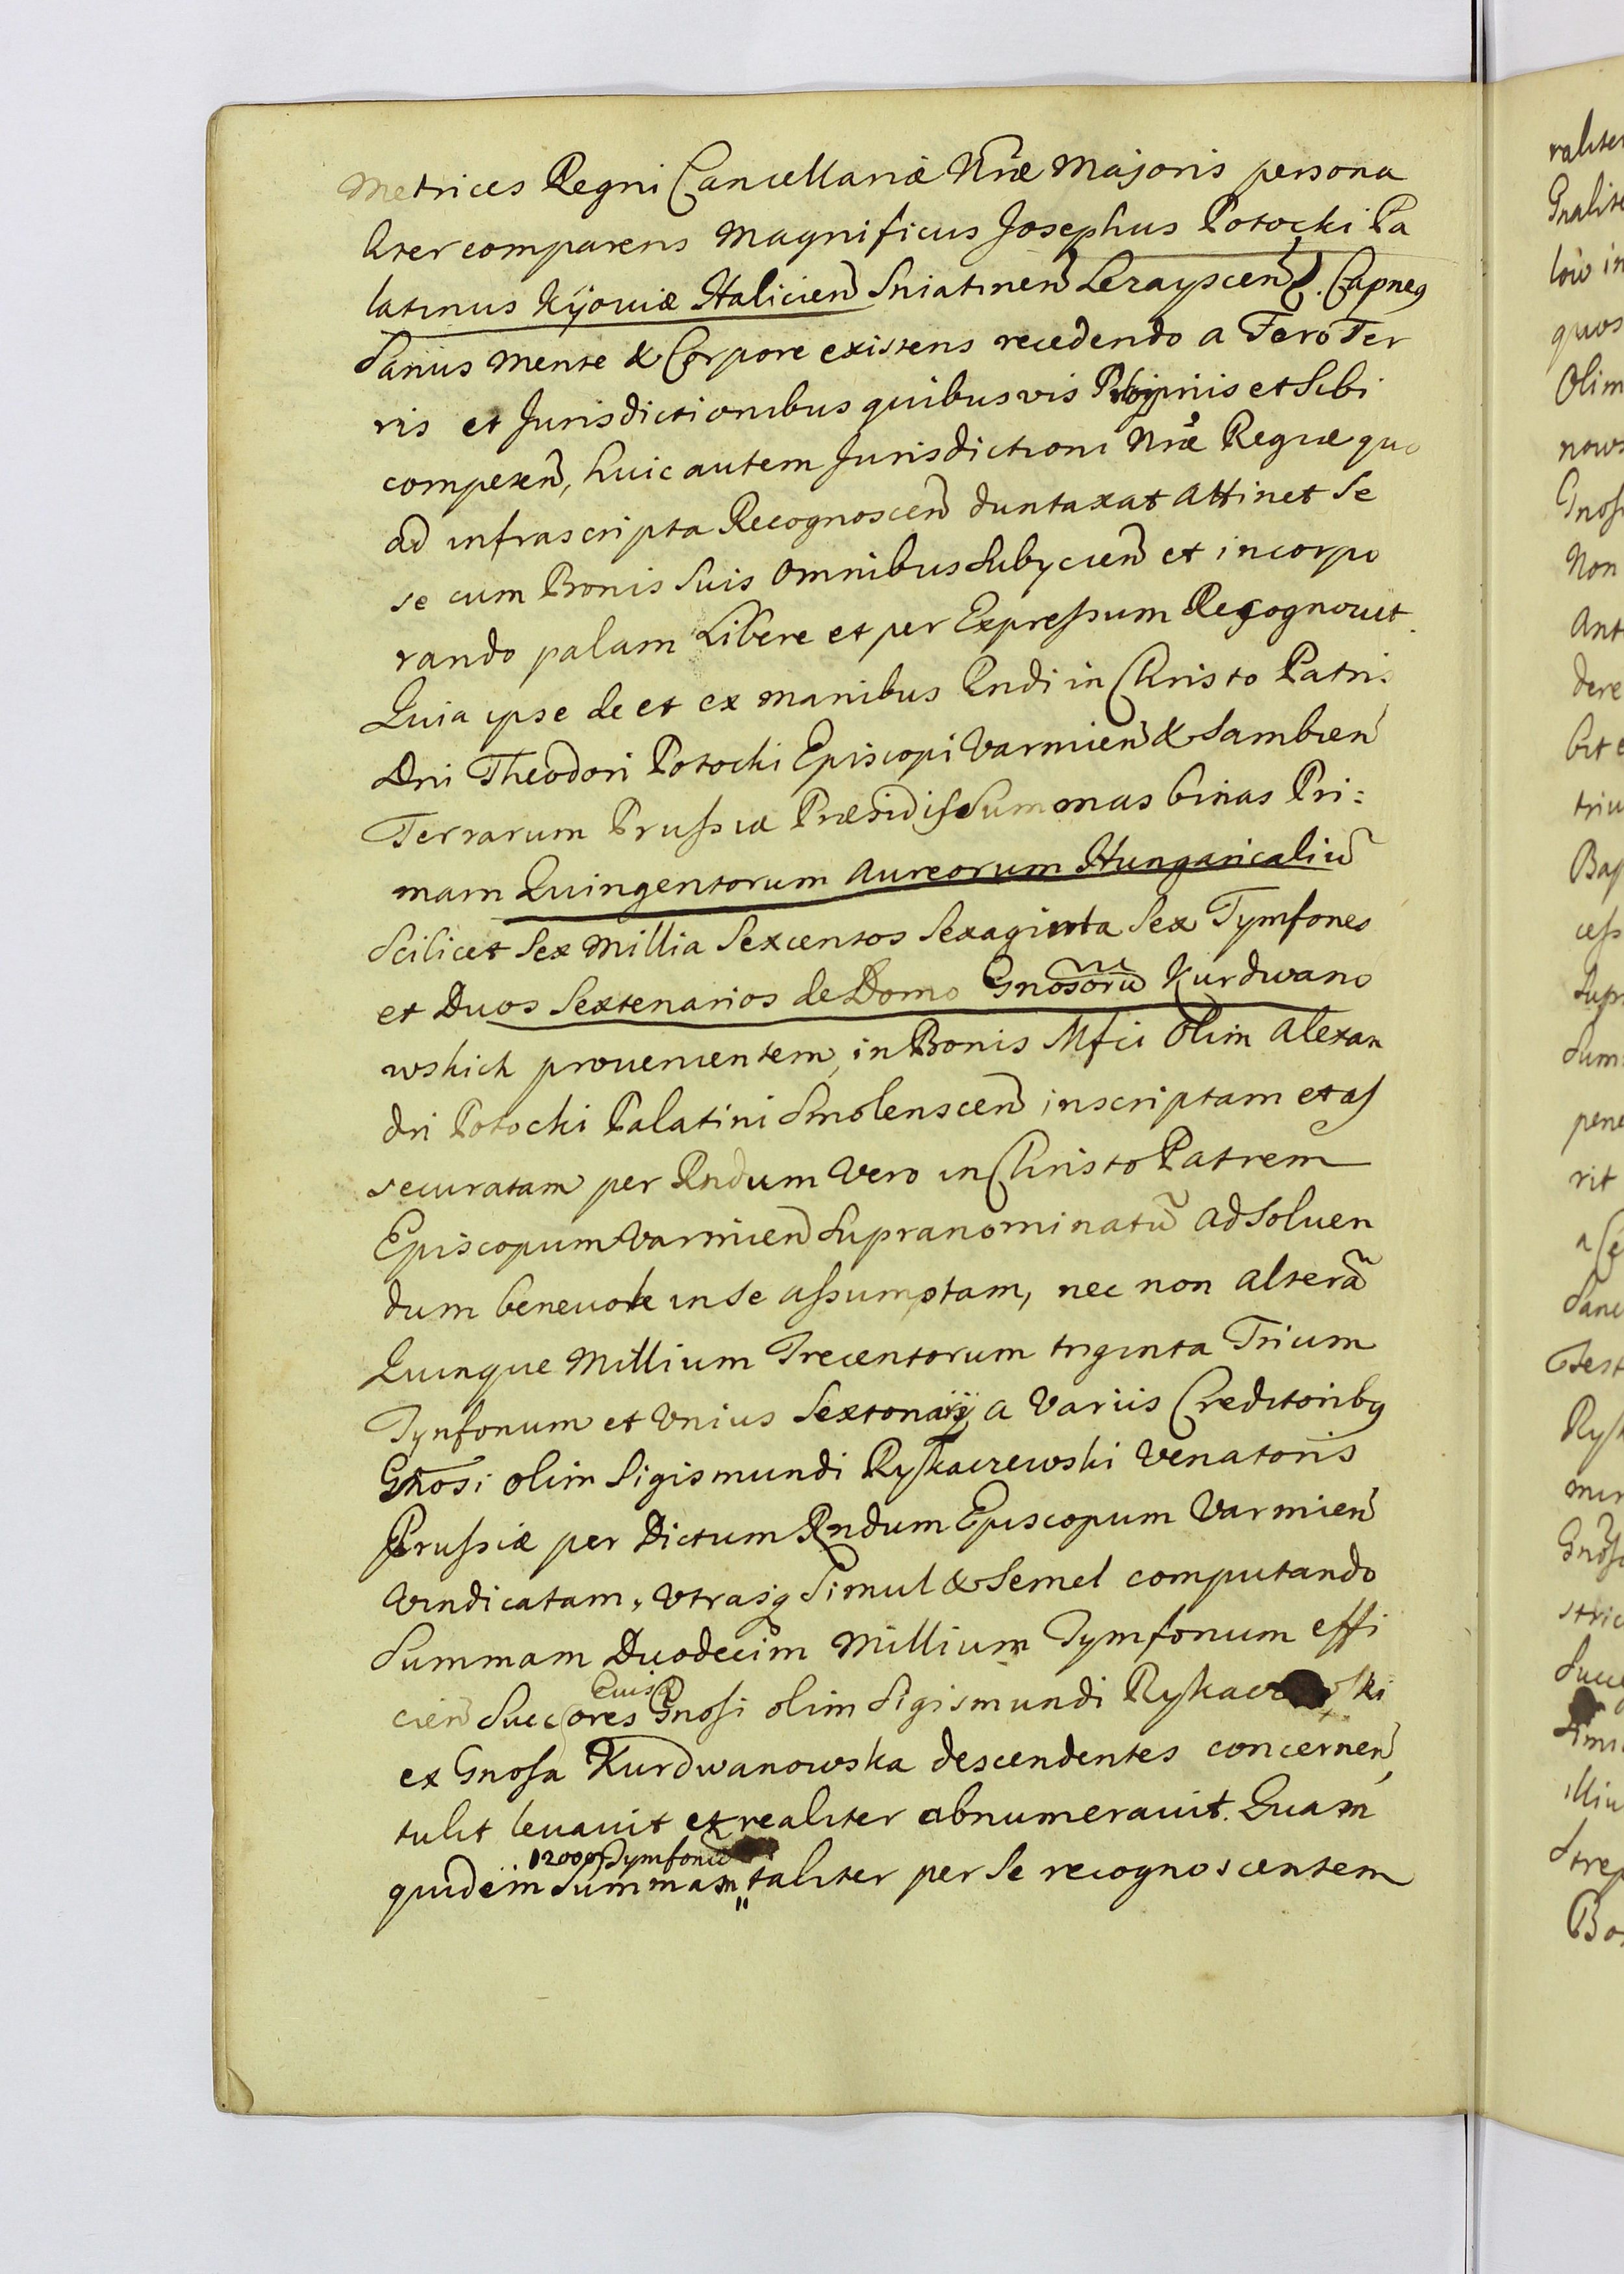 Metrices Regni Cancellariæ Nræ Majoris persona
liter comparens Magnificus Josephus Potocki Pa
latinus Kÿoviæ Haliciẽn Sniatinẽn Lerayscẽn Capneg
Sanus Mente & Corpore existens recedendo a Foro Ter
ris et Jurisdictionibus quibusvis et Sibi
competẽn, huic autem Jurisdictioni Nræ Regiæ quo
ad infrascripta Recognoscẽn duntaxat Attinet Se
se cum Bonis Suis Omnibus Subyciẽn et incorpo
rando palam Libere et per Expressum Recognovit.
Quia ipse de et ex Manibus Rndi in Christo Patris
Dni Theodori Potocki Episcopi Varmiẽn & Sambiẽn
Terrarum Prussiæ Præsidis Summas binas Pri:
mam Quingentorum Aureorum Hungaricaliũ
Scilicet Sex Millia Sexcentos Sexaginta Sex Tymfones
et Duos Sextenarios de Domo Gnosorũ Kurdwano
wskich provenientem, in Bonis Mfci Olim Alexan
dri Potocki Palatini Smolenscẽn inscriptam et as
securatam per Rndum Vero in Christo Patrem
Episcopum Varmiẽn Supranominatũ ad Soluen
dum benevole in Se assumptam, nec non Alterã
Quinque Millium Trecentorum triginta Trium
Tynfonum et Vnius Sextonarij a Variis Creditoribq
Gnosi olim Sigismundi Ryskaczewski Venatoris
Prussiæ per Dictum Rndum Episcopum Varmiẽn
Vindicatam, Vtrasq Simul & Semel computando
Summam Duodecim Millium Tymfonum effi
ciẽn Succores Gnosi olim Sigismundi
ex Gnosa Kurdwanowska descendentes concernẽn,
tulit levavit et realiter abnumeravit. Quam
12000 Tymfonũ
quidem Summam taliter per Se recognoscentem
raliter
low in
quos
Olim
nows
Non
Ant
dere
bit e
triu
Bap
cess
Supr
Sum
pene
rit
Sanc
Test
Rysk
min
stric
Succ
illiu
Strep
Bo